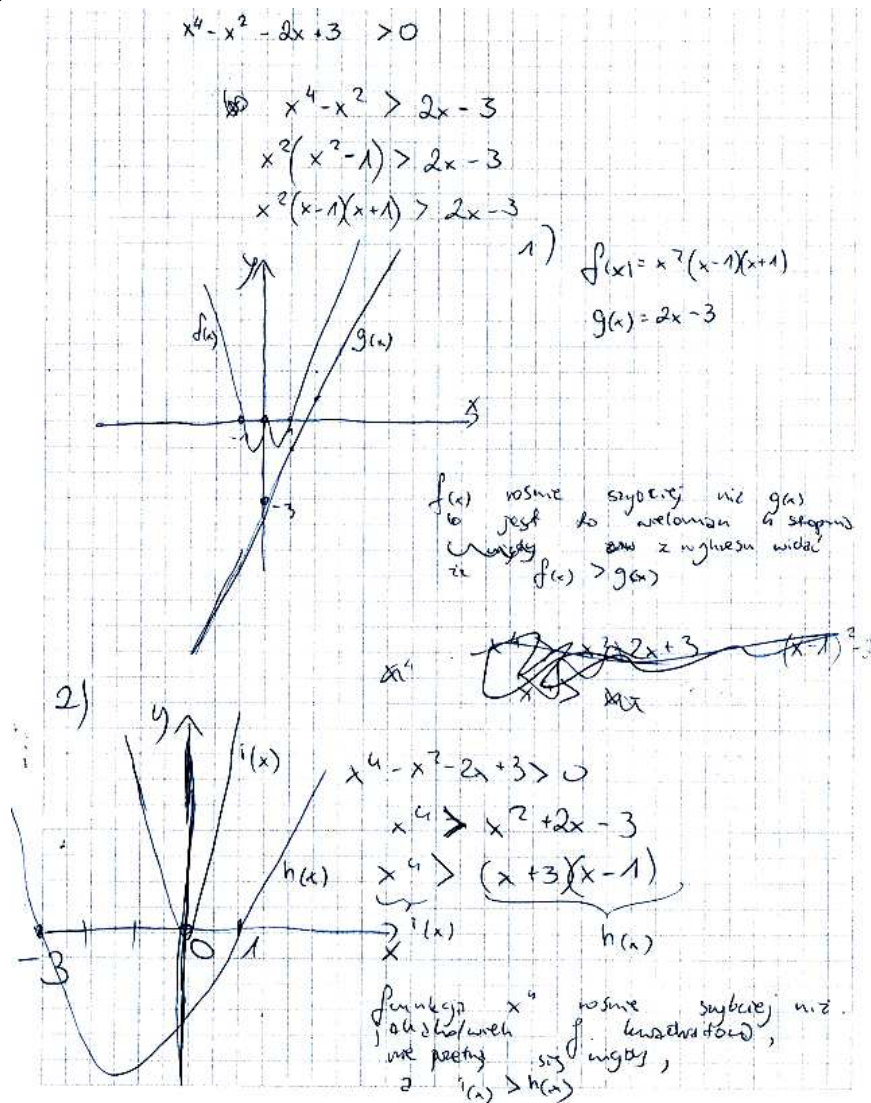 x⁴ - x² - 2x + 3 > 0
x⁴ - x² > 2x - 3
x²(x² - 1) > 2x - 3
x²(x-1)(x+1) > 2x - 3
1)
f(x) = x²(x-1)(x+1)
g(x) = 2x - 3
y
f(x)
g(x)
x
-1
-3
f(x) rośnie szybciej niż g(x)
bo jest to wielomian 4 stopnia
z wykresu widać
że f(x) > g(x)
2)
y
i(x)
h(x)
x
-3
0
1
x⁴ - x² - 2x + 3 > 0
x⁴ > x² + 2x - 3
x⁴ > (x+3)(x-1)
i(x)
h(x)
funkcja x⁴ rośnie szybciej niż
jakakolwiek f kwadratowa,
nie przetną się nigdy,
a i(x) > h(x)